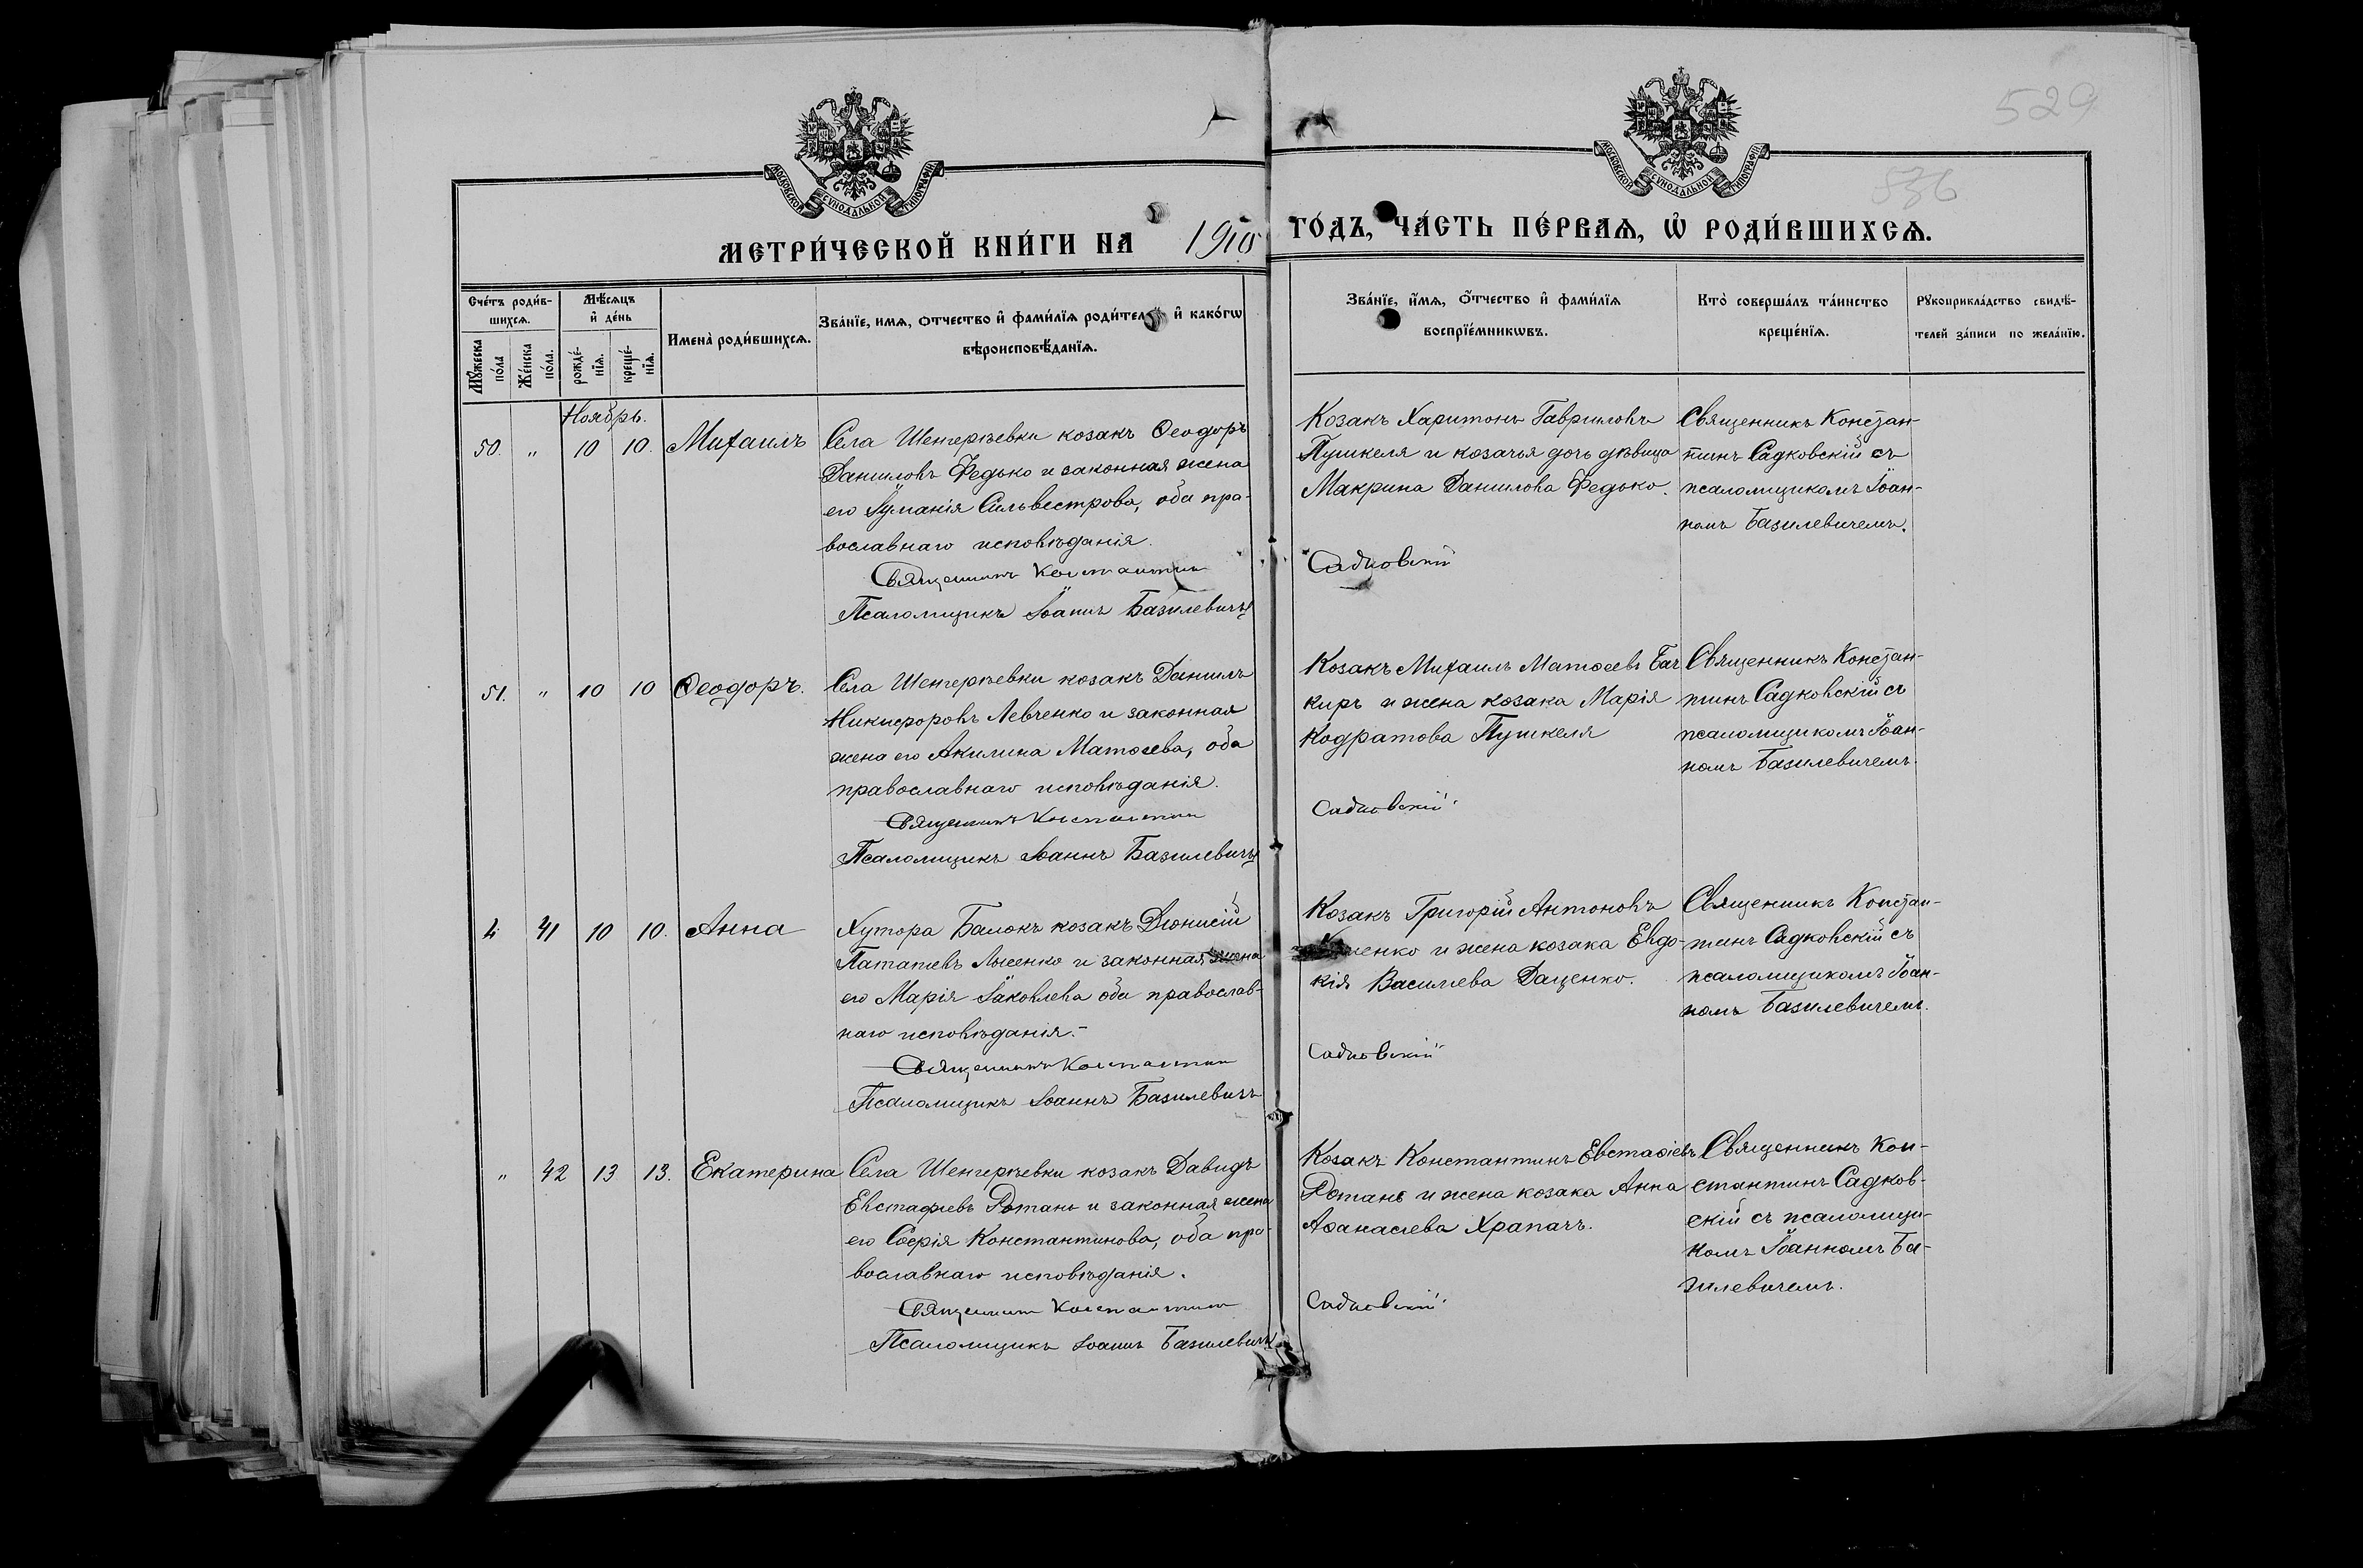 529
536
МОСКОВСКОЙ СѴНОДАЛЬНОЙ ТИПОГРАФІИ
МОСКОВСКОЙ СѴНОДАЛЬНОЙ ТИПОГРАФІИ
МЕТРИ́ЧЕСКОЙ КНИ́ГИ НА 1910 ГО́ДЪ, ЧА́СТЬ ПЕ́РВАѦ, Ѡ҆ РОДИ́ВШИХСѦ.
Сче́тъ роди́в-
шихсѧ.
Мꙋ́жеска
по́ла
Же́нска
по́ла.
Мѣ́сѧцъ
и҆ де́нь
рожде́-
нїѧ.
креще́-
нїѧ.
Имена̀ роди́вшихсѧ.
Зва́нїе, имѧ, ѻтчество и҆ фами́лїѧ роди́тел и҆ како́гѡ
вѣроисповѣ́данїѧ.
Зва́нїе, и҆́мѧ, ѻ҆́тчество и҆ фами́лїѧ
воспрїе́мникѡвъ.
Кто̀ соверша́лъ та́инство
креще́нїѧ.
Рꙋкоприкла́дство свидѣ́-
телей за́писи по жела́нїю.
Ноябрь.
50. " 10 10. Михаилъ
Села Шенгерѣевки козакъ Ѳеодоръ
Даниловъ Федько и законная жена
его Іуманія Сильвестрова, оба пра-
вославнаго исповѣданія.
Священникъ Константин
Псаломщикъ Іоаннъ Базилевичъ
Козакъ Харитонъ Гавриловъ
Пушкеля и козачья дочь дѣвица
Макрина Данилова Федько.
Садковскій
Священникъ Констан-
тинъ Садковскій съ
псаломщикомъ Іоан-
номъ Базилевичемъ.
51. " 10 10 Ѳеодоръ.
Села Шенгерѣевки козакъ Даниилъ
Никифоровъ Левченко и законная
жена его Акилина Матѳеева, оба
православнаго исповѣданія.
Священникъ Константин
Псаломщикъ Іоаннъ Базилевичъ
Козакъ Михаилъ Матѳеевъ Бач
киръ и жена козака Марія
Кодратова Пушкеля
Садковскій
Священникъ Констан-
тинъ Садковскій съ
псаломщикомъ Іоан-
номъ Базилевичемъ.
41 10 10. Анна
Хутора Балокъ козакъ Діонисій
Лысенко и законная жена
его Марія Іаковлева оба православ-
наго исповѣданія.-
Священникъ Константин
Псаломщикъ Іоаннъ Базилевичъ
Козакъ Григорій Антоновъ
и жена козака Евдо-
кія Василіева Даценко.
Садковскій
Священникъ Констан-
тинъ Садковскій съ
псаломщикомъ Іоан-
номъ Базилевичемъ.
" 42 13 13. Екатерина
Села Шенгерѣевки козакъ Давидъ
Евстафіевъ Ротань и законная жена
его Софія Константинова, оба пра-
вославнаго исповѣданія.
Священникъ Константин
Псаломщикъ Іоаннъ Базилевичъ
Козакъ Константинъ Евстафіевъ
Ротань и жена козака Анна
Аѳанасіева Храпачъ.
Садковскій
Священникъ Кон-
стантинъ Садков-
скій съ псаломщи-
комъ Іоанномъ Ба-
зилевичемъ.